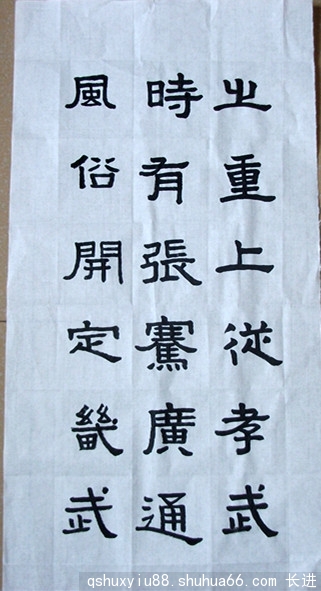 之重上從孝武
時有張騫廣通
風俗開定畿武
qshuxyiu88.shuhua66.com 长进